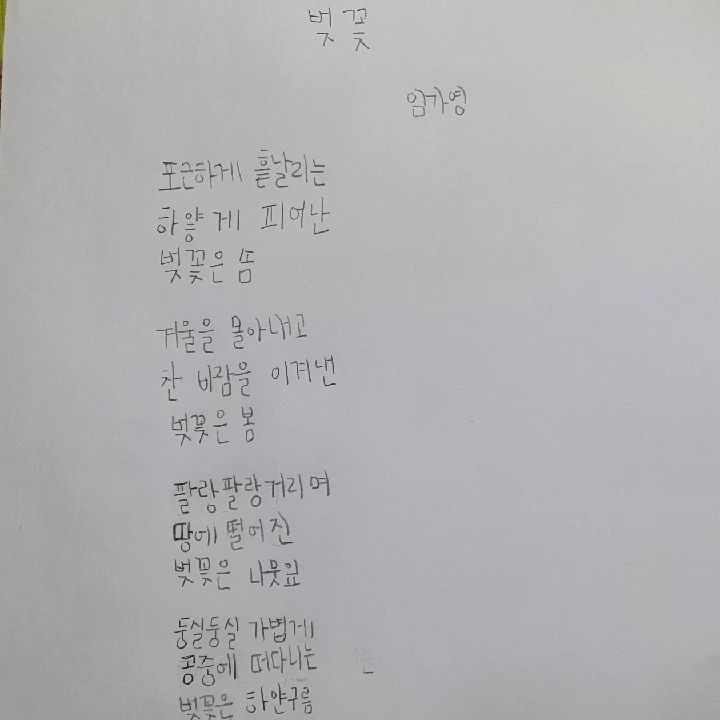 벚꽃
임가영
포근하게 흩날리는
하얗게 피어난
벚꽃은 솜
겨울을 몰아내고
찬 바람을 이겨낸
벚꽃은 봄
팔랑팔랑거리며
땅에 떨어진
벚꽃은 나뭇잎
둥실둥실 가볍게
공중에 떠다니는
벚꽃은 하얀구름